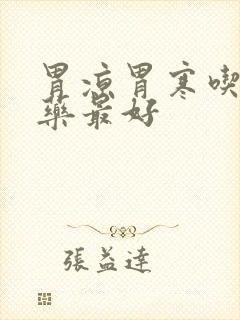 胃凉胃寒喫
藥最好
張益達